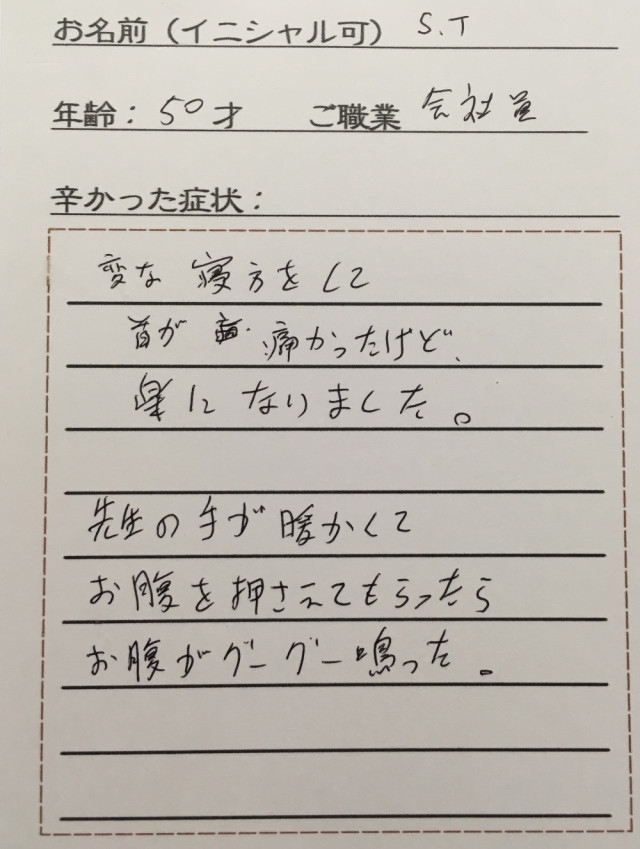 お名前（イニシャル可） S.T
年齢：50才 ご職業 会社員
辛かった症状：
変な寝方をして
首が 痛かったけど、
楽になりました。
先生の手が暖かくて
お腹を押さえてもらったら
お腹がグーグー鳴った。